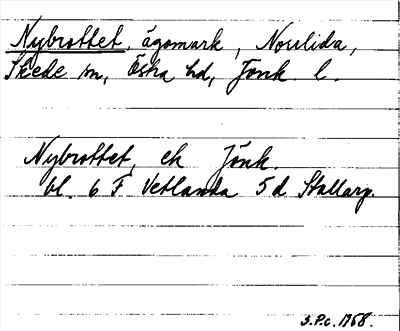 Nybrottet, ägomark, Norrlida,
Skede sn, Östra hd, Jönk. l.
Nybrottet, ek Jönk.
bl. 6 F Vetlanda 5 d Stallarp.
S.P.c. 1968.